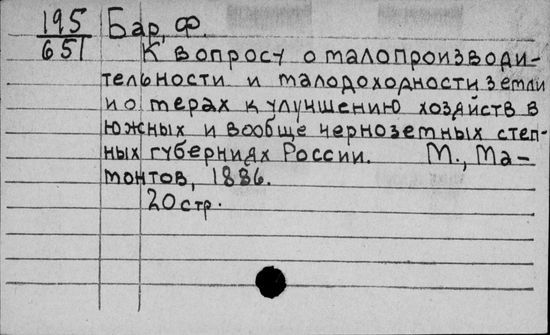 195 Бар, Ф.
651 К вопросу о малопроизводи-
тельности и малодоходности земли
и о мерах к улучшению хозяйств в
южных и вообще черноземных степ-
ных губерниях России. М., Ма-
монтов, 1886.
20 стр.